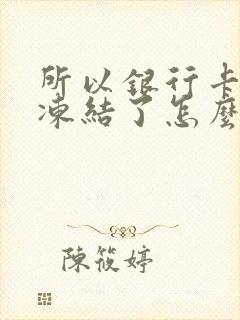 所以銀行卡
凍結了怎麼
陳筱婷